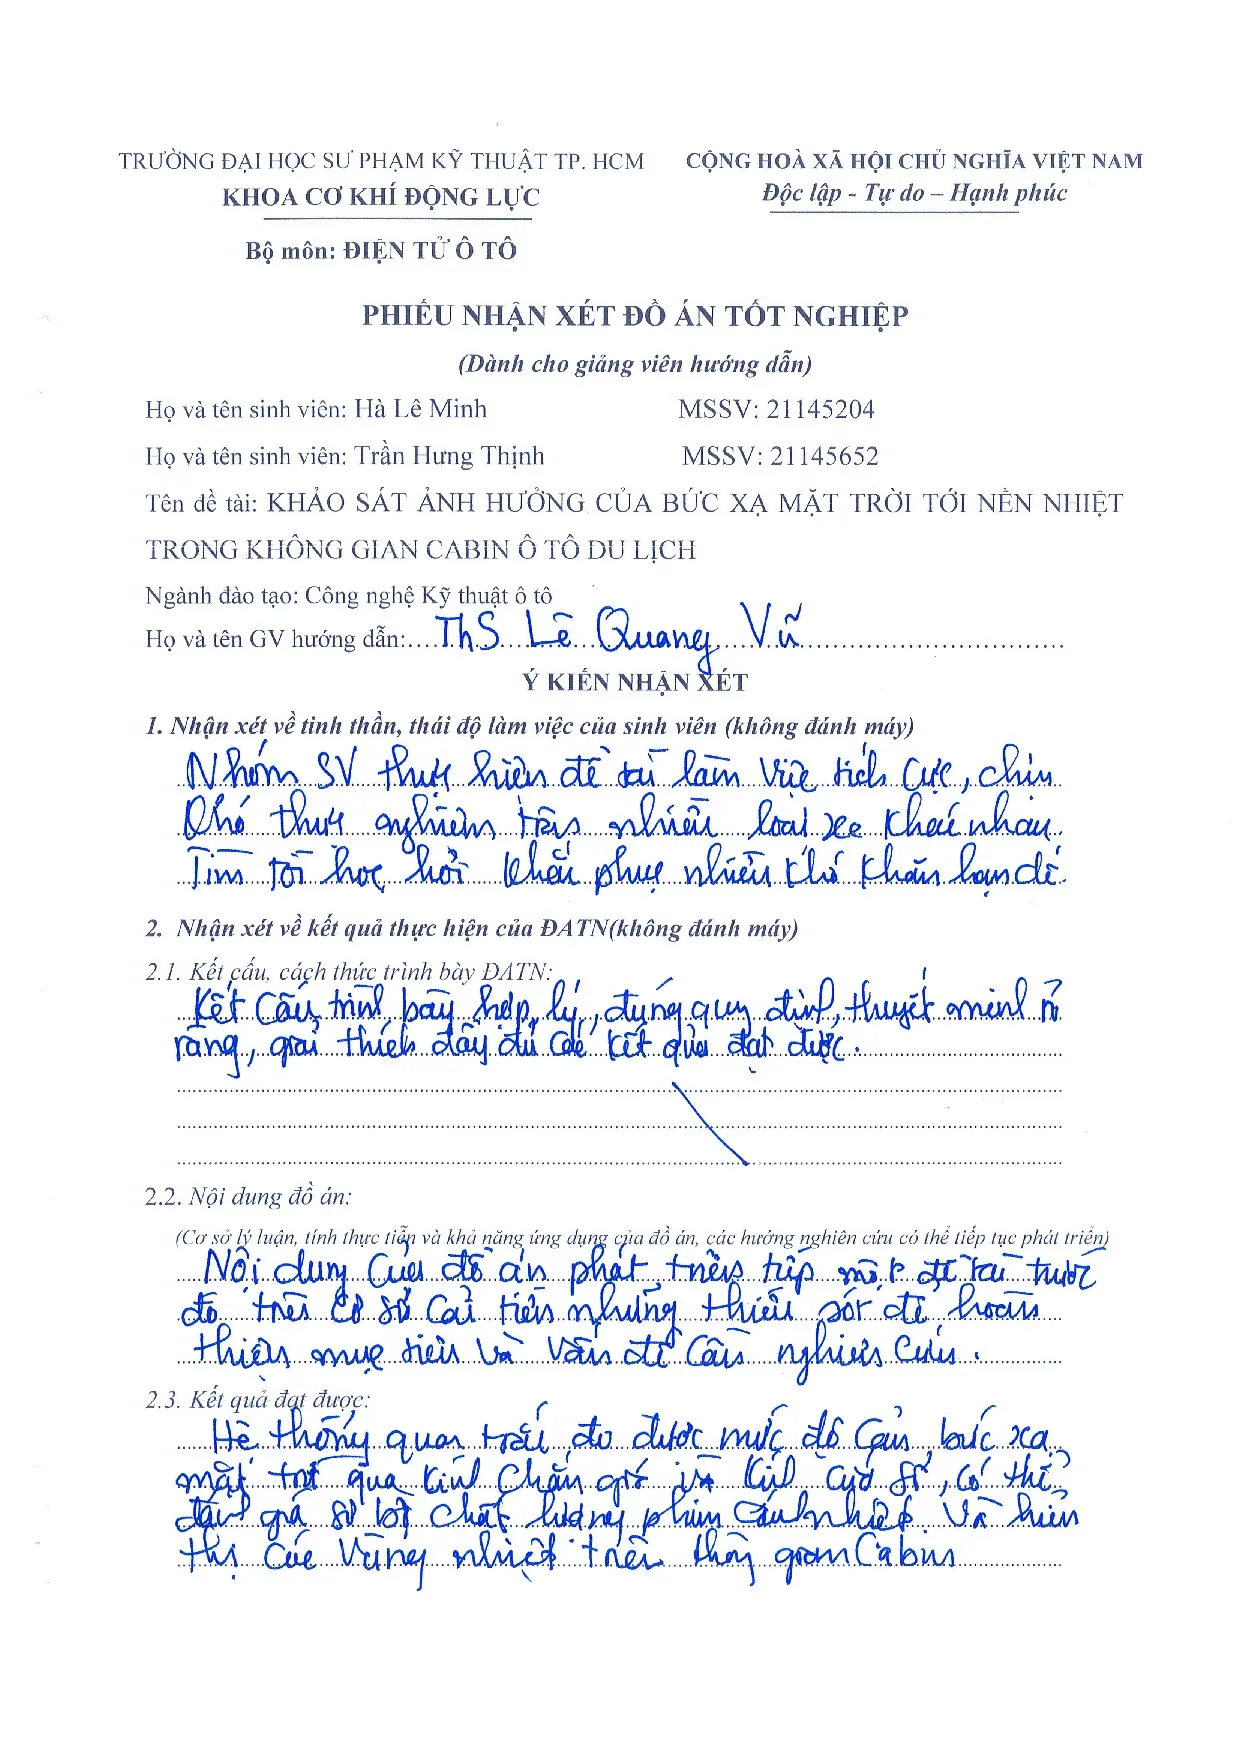 TRƯỜNG ĐẠI HỌC SƯ PHẠM KỸ THUẬT TP. HCM
KHOA CƠ KHÍ ĐỘNG LỰC
Bộ môn: ĐIỆN TỬ Ô TÔ
CỘNG HOÀ XÃ HỘI CHỦ NGHĨA VIỆT NAM
Độc lập - Tự do – Hạnh phúc
PHIẾU NHẬN XÉT ĐỒ ÁN TỐT NGHIỆP
(Dành cho giảng viên hướng dẫn)
Họ và tên sinh viên: Hà Lê Minh MSSV: 21145204
Họ và tên sinh viên: Trần Hưng Thịnh MSSV: 21145652
Tên đề tài: KHẢO SÁT ẢNH HƯỞNG CỦA BỨC XẠ MẶT TRỜI TỚI NỀN NHIỆT
TRONG KHÔNG GIAN CABIN Ô TÔ DU LỊCH
Ngành đào tạo: Công nghệ Kỹ thuật ô tô
Họ và tên GV hướng dẫn: ThS Lê Quang Vũ
Ý KIẾN NHẬN XÉT
1. Nhận xét về tinh thần, thái độ làm việc của sinh viên (không đánh máy)
Nhóm SV thực hiện đề tài làm việc tích cực, chịu
khó thực nghiệm trên nhiều loại xe khác nhau.
Tìm tòi học hỏi khắc phục nhiều khó khăn hạn chế.
2. Nhận xét về kết quả thực hiện của ĐATN(không đánh máy)
2.1. Kết cấu, cách thức trình bày ĐATN:
Kết cấu trình bày hợp lý, đúng quy định, thuyết minh rõ
ràng, giải thích đầy đủ các kết quả đạt được.
2.2. Nội dung đồ án:
(Cơ sở lý luận, tính thực tiễn và khả năng ứng dụng của đồ án, các hướng nghiên cứu có thể tiếp tục phát triển)
Nội dung của đồ án phát triển tiếp một đề tài trước
đó trên cơ sở cải tiến những thiếu sót để hoàn
thiện mục tiêu và vấn đề cần nghiên cứu.
2.3. Kết quả đạt được:
Hệ thống quan trắc đo được mức độ cản bức xạ
mặt trời qua kính chắn gió và kính cửa sổ, có thể
đánh giá sơ bộ chất lượng phim cách nhiệt. Và hiển
thị các vùng nhiệt trên không gian Cabin